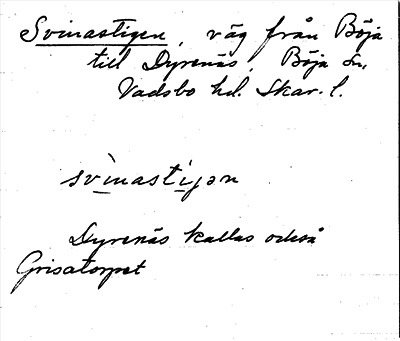 Svinastigen, väg från Böja
till Dyrenäs, Böja sn,
Vadsbo hd. Skar. l.
svìnastiγən
Dyrenäs kallas också
Grisatorpet